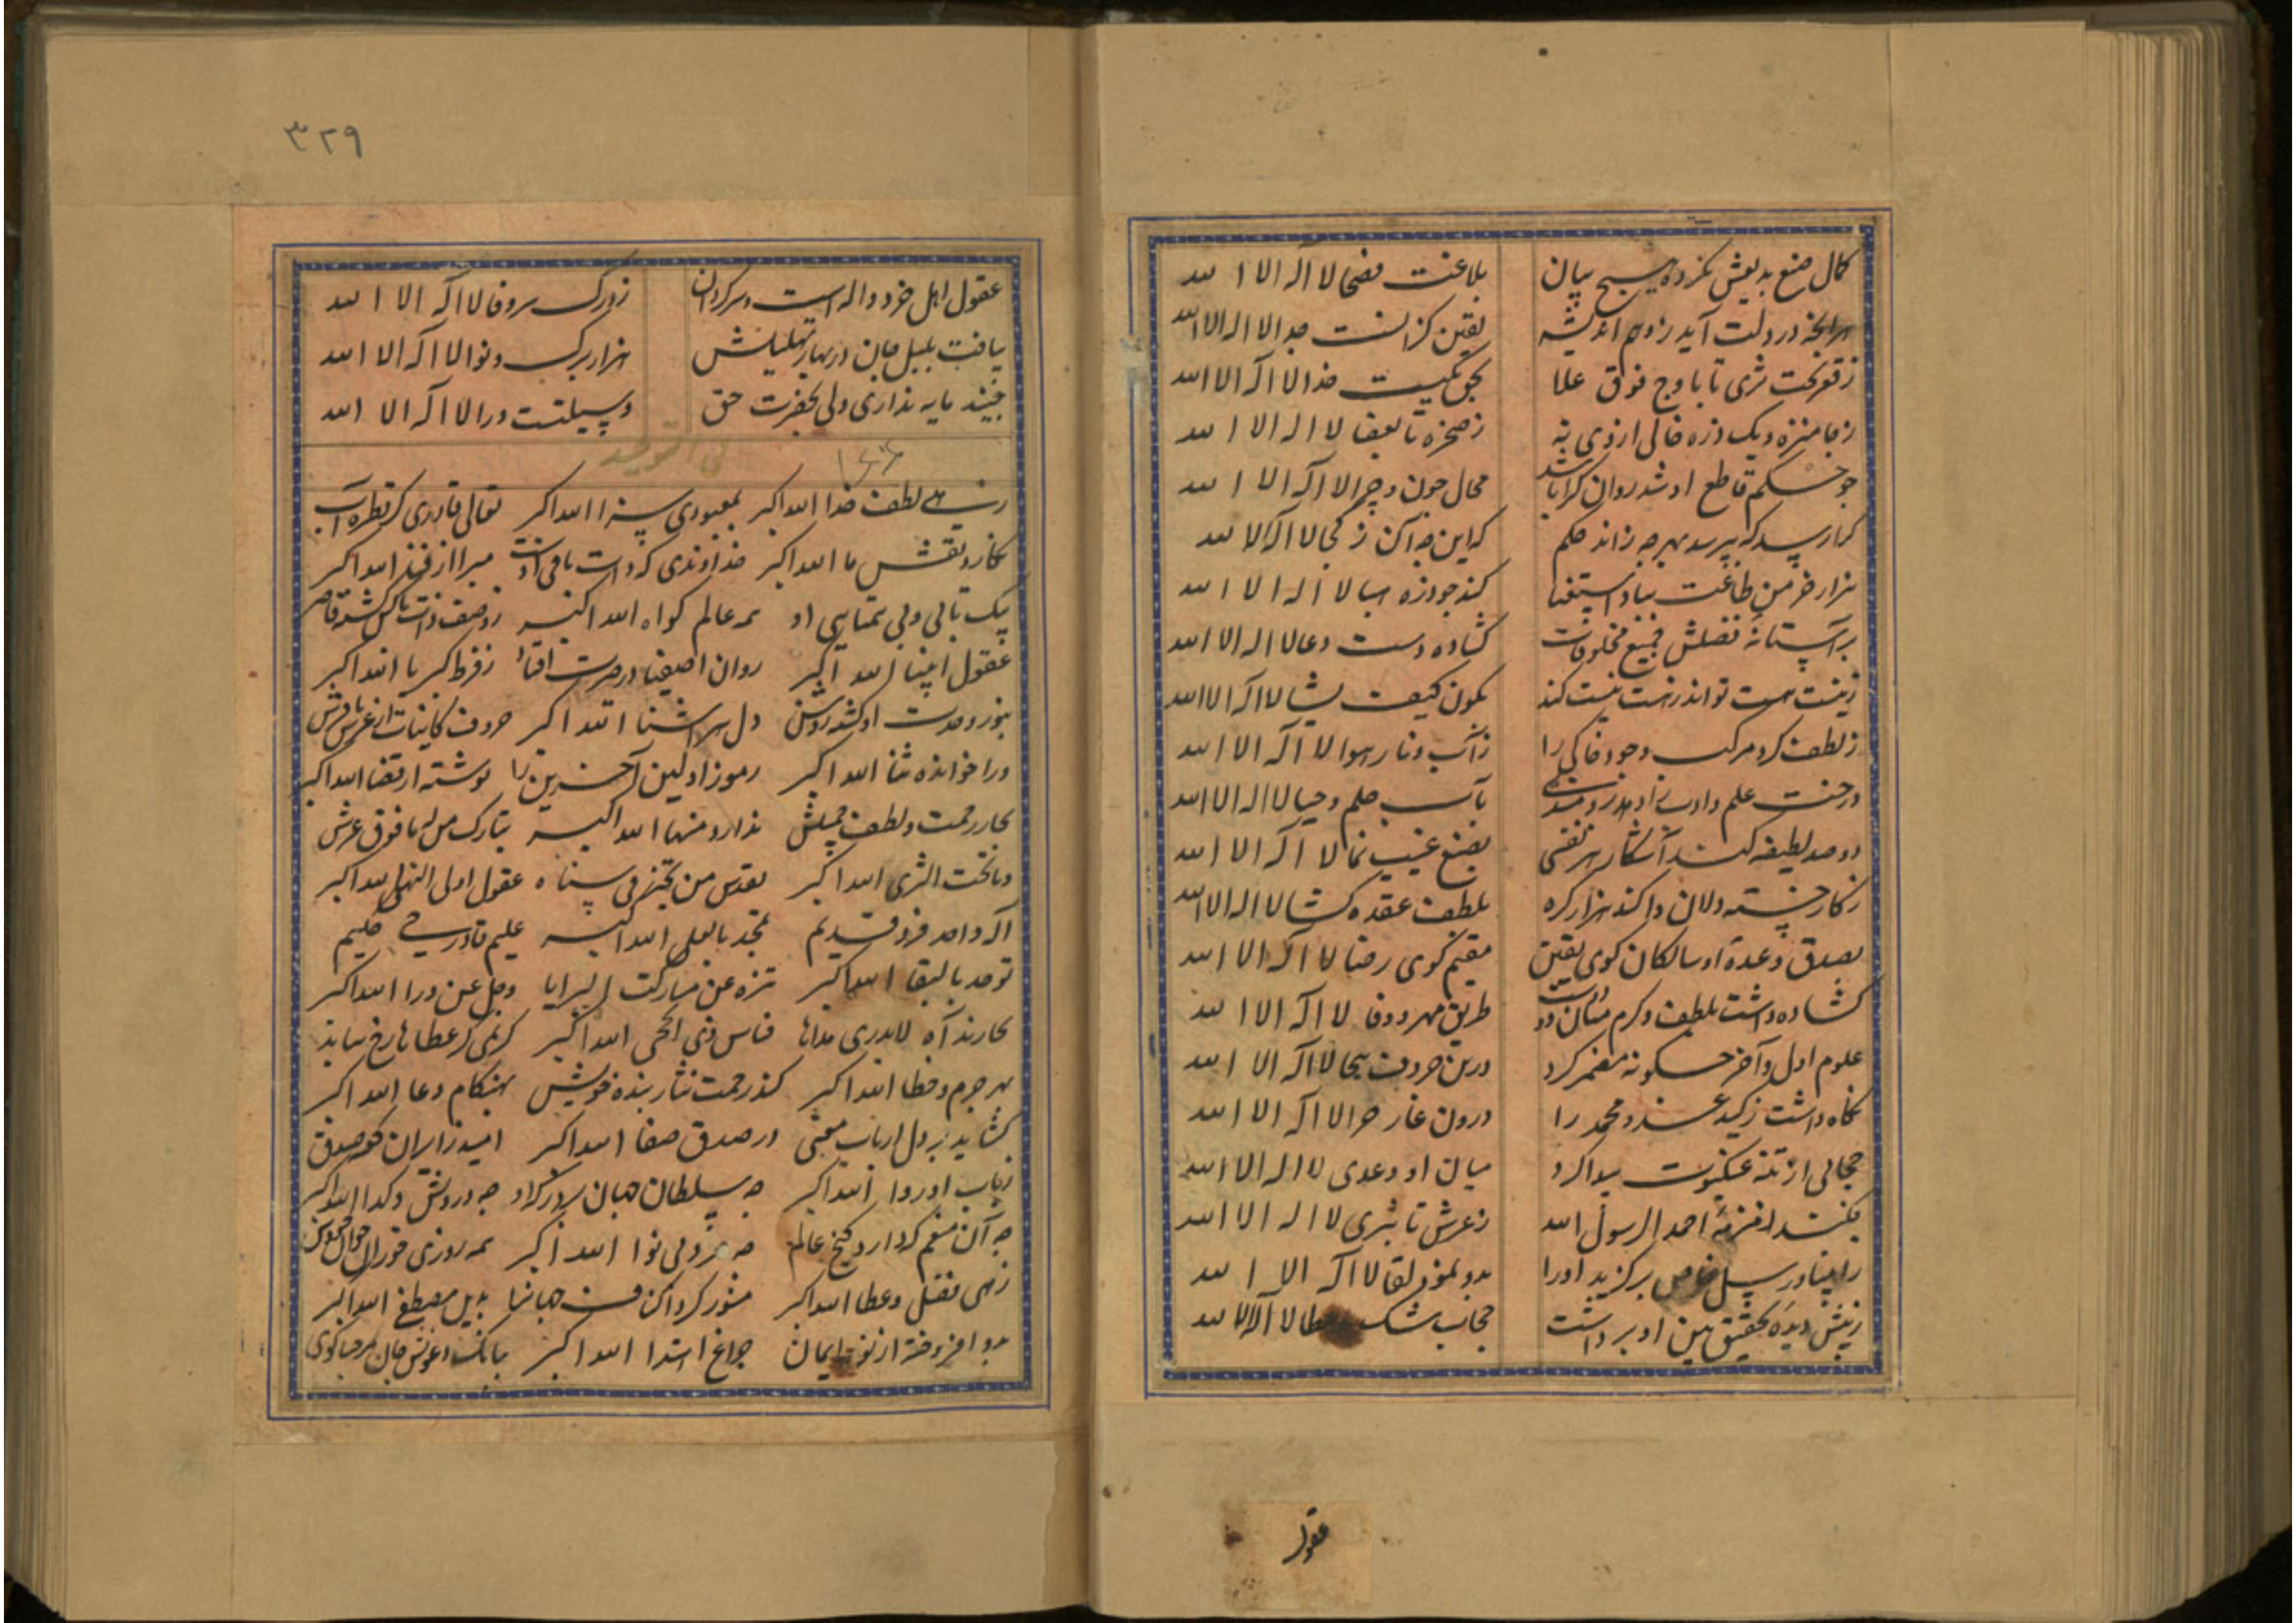 کمال صنع بدیعش نکرده هیچ بیان بلاغت فصحا لا اله الا الله
هرآنچه در دلت آید ز وهم اندیشه یقین کزانست جدا لا اله الا الله
ز قعر تحت ثری تا باوج فوق علا بحق یکیست خدا لا اله الا الله
لا اله الا الله
چو حکم قاطع او شد روان محال چون و چرا لا اله الا الله
کرا رسد که بپرسد بهرچه راند حکم که این چه آن ز کجا لا اله الا الله
هزار خرمن طاعت بباد استغنا کند چو ذره هبا لا اله الا الله
بر آستانه فضلش جمیع مخلوقات کشاده دست دعا لا اله الا الله
ز نیست هست تواند ز هست نیست کند بکون کیف یشا لا اله الا الله
ز لطف کرد مرکب وجود خاکی را ز آب و نار هوا لا اله الا الله
درخت علم و ادب بآب حلم و حیا لا اله الا الله
دو صد لطیفه کند آشکار هر نفسی بصنع غیب نما لا اله الا الله
ز کار خسته دلان وا کند هزار کره بلطف عقده کشا لا اله الا الله
بصدق وعده او سالکان کوی یقین مقیم کوی رضا لا اله الا الله
کشاده داشت بلطف و کرم میان دو دست طریق مهر و وفا لا اله الا الله
علوم اول و آخر چکونه مضمر کرد درین حروف هجا لا اله الا الله
نکاه داشت ز کید عدو محمد را درون غار حرا لا اله الا الله
حجابی از تنه عنکبوت پیدا کرد میان او و عدی لا اله الا الله
احمد الرسول الله ز عرش تا بثری لا اله الا الله
خاص برکزید او را بدو نمود لقا لا اله الا الله
ز پیش دیده تحقیق بین او برداشت حجاب شک و خطا لا اله الا الله
عقول
۳۲۹
عقول اهل خرد واله است و سرکردان ز درک سر وفا لا اله الا الله
بیافت بلبل جان در بهار تهلیلش هزار برک و نوا لا اله الا الله
جنید مایه نداری ولی بحضرت حق وسیلتست ورا لا اله الا الله
فی التوحید
زهی لطف خدا الله اکبر بمعبودی سزا الله اکبر تعالی قادری کز قطره آب
نکارد نقش ما الله اکبر خداوندی که ذات باقی اوست مبرا از فنا الله اکبر
بیکتایی و بی همتایی او همه عالم کواه الله اکبر ز وصف ذات پاکش کشته قاصر
عقول انبیا الله اکبر روان اصفیا در حیرت افتاد ز فرط کبریا الله اکبر
بنور وحدت او کشته روشن دل هر آشنا الله اکبر حروف کاینات از عرش تا فرش
ورا خوانده ثنا الله اکبر رموز اولین آخرین را نوشته از قضا الله اکبر
بحار رحمت و لطف جمیلش ندارد منتها الله اکبر تبارک من له ما فوق عرش
و ما تحت الثری الله اکبر عقول اولی النهی الله اکبر
اله واحد فرد قدیم تمجد بالعلی الله اکبر علیم قادر حی حکیم
توحد بالبقا الله اکبر تنزه عن مشارکت البرایا و جل عن ورا الله اکبر
لا یدری مداها الله اکبر کریمی کز عطاها رخ نتابد
بهر جرم و خطا الله اکبر کند رحمت نثار بنده خویش بهنکام دعا الله اکبر
کشاید بر دل ارباب معنی در صدق صفا الله اکبر
الله اکبر چه سلطان جهان چه درویش و کدا الله اکبر
چه آن منعم که دارد کنج عالم الله اکبر همه روزی خوران
زهی فضل و عطا الله اکبر منور کرد جهانرا الله اکبر
بدو افروخته از نور ایمان چراغ اهتدا الله اکبر